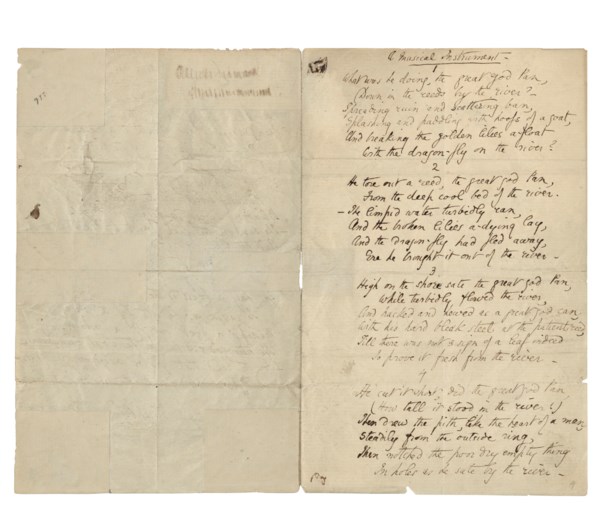 A Musical Instrument -
1
What was he doing, the great god Pan,
Down in the reeds by the river? -
Spreading ruin and scattering ban,
Splashing and paddling with hoofs of a goat,
And breaking the golden lilies afloat
With the dragon-fly on the river?
2
He tore out a reed, the great god Pan,
From the deep cool bed of the river -
- The limpid water turbidly ran,
And the broken lilies a-dying lay,
And the dragon-fly had fled away,
Ere he brought it out of the river -
3
High on the shore sate the great god Pan,
While turbidly flowed the river,
And hacked and hewed as a great god can,
With his hard bleak steel at the patient reed,
Till there was not a sign of a leaf indeed
To prove it fresh from the river -
4
He cut it short, did the great god Pan
(How tall it stood in the river!)
Then drew the pith, like the heart of a man,
Steadily from the outside ring,
Then notched the poor dry empty thing
In holes as he sate by the river -